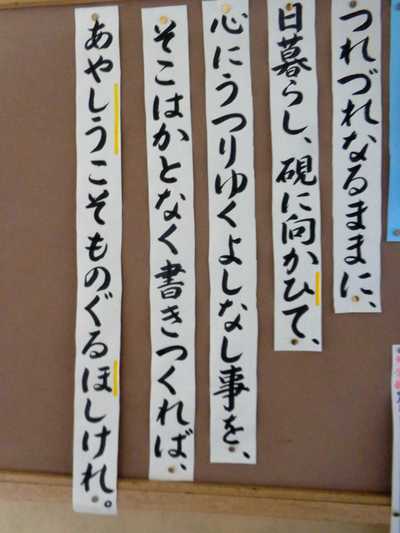 つれづれなるままに、
日暮らし、硯に向かひて、
心にうつりゆくよしなし事を、
そこはかとなく書きつくれば、
あやしうこそものぐるほしけれ。